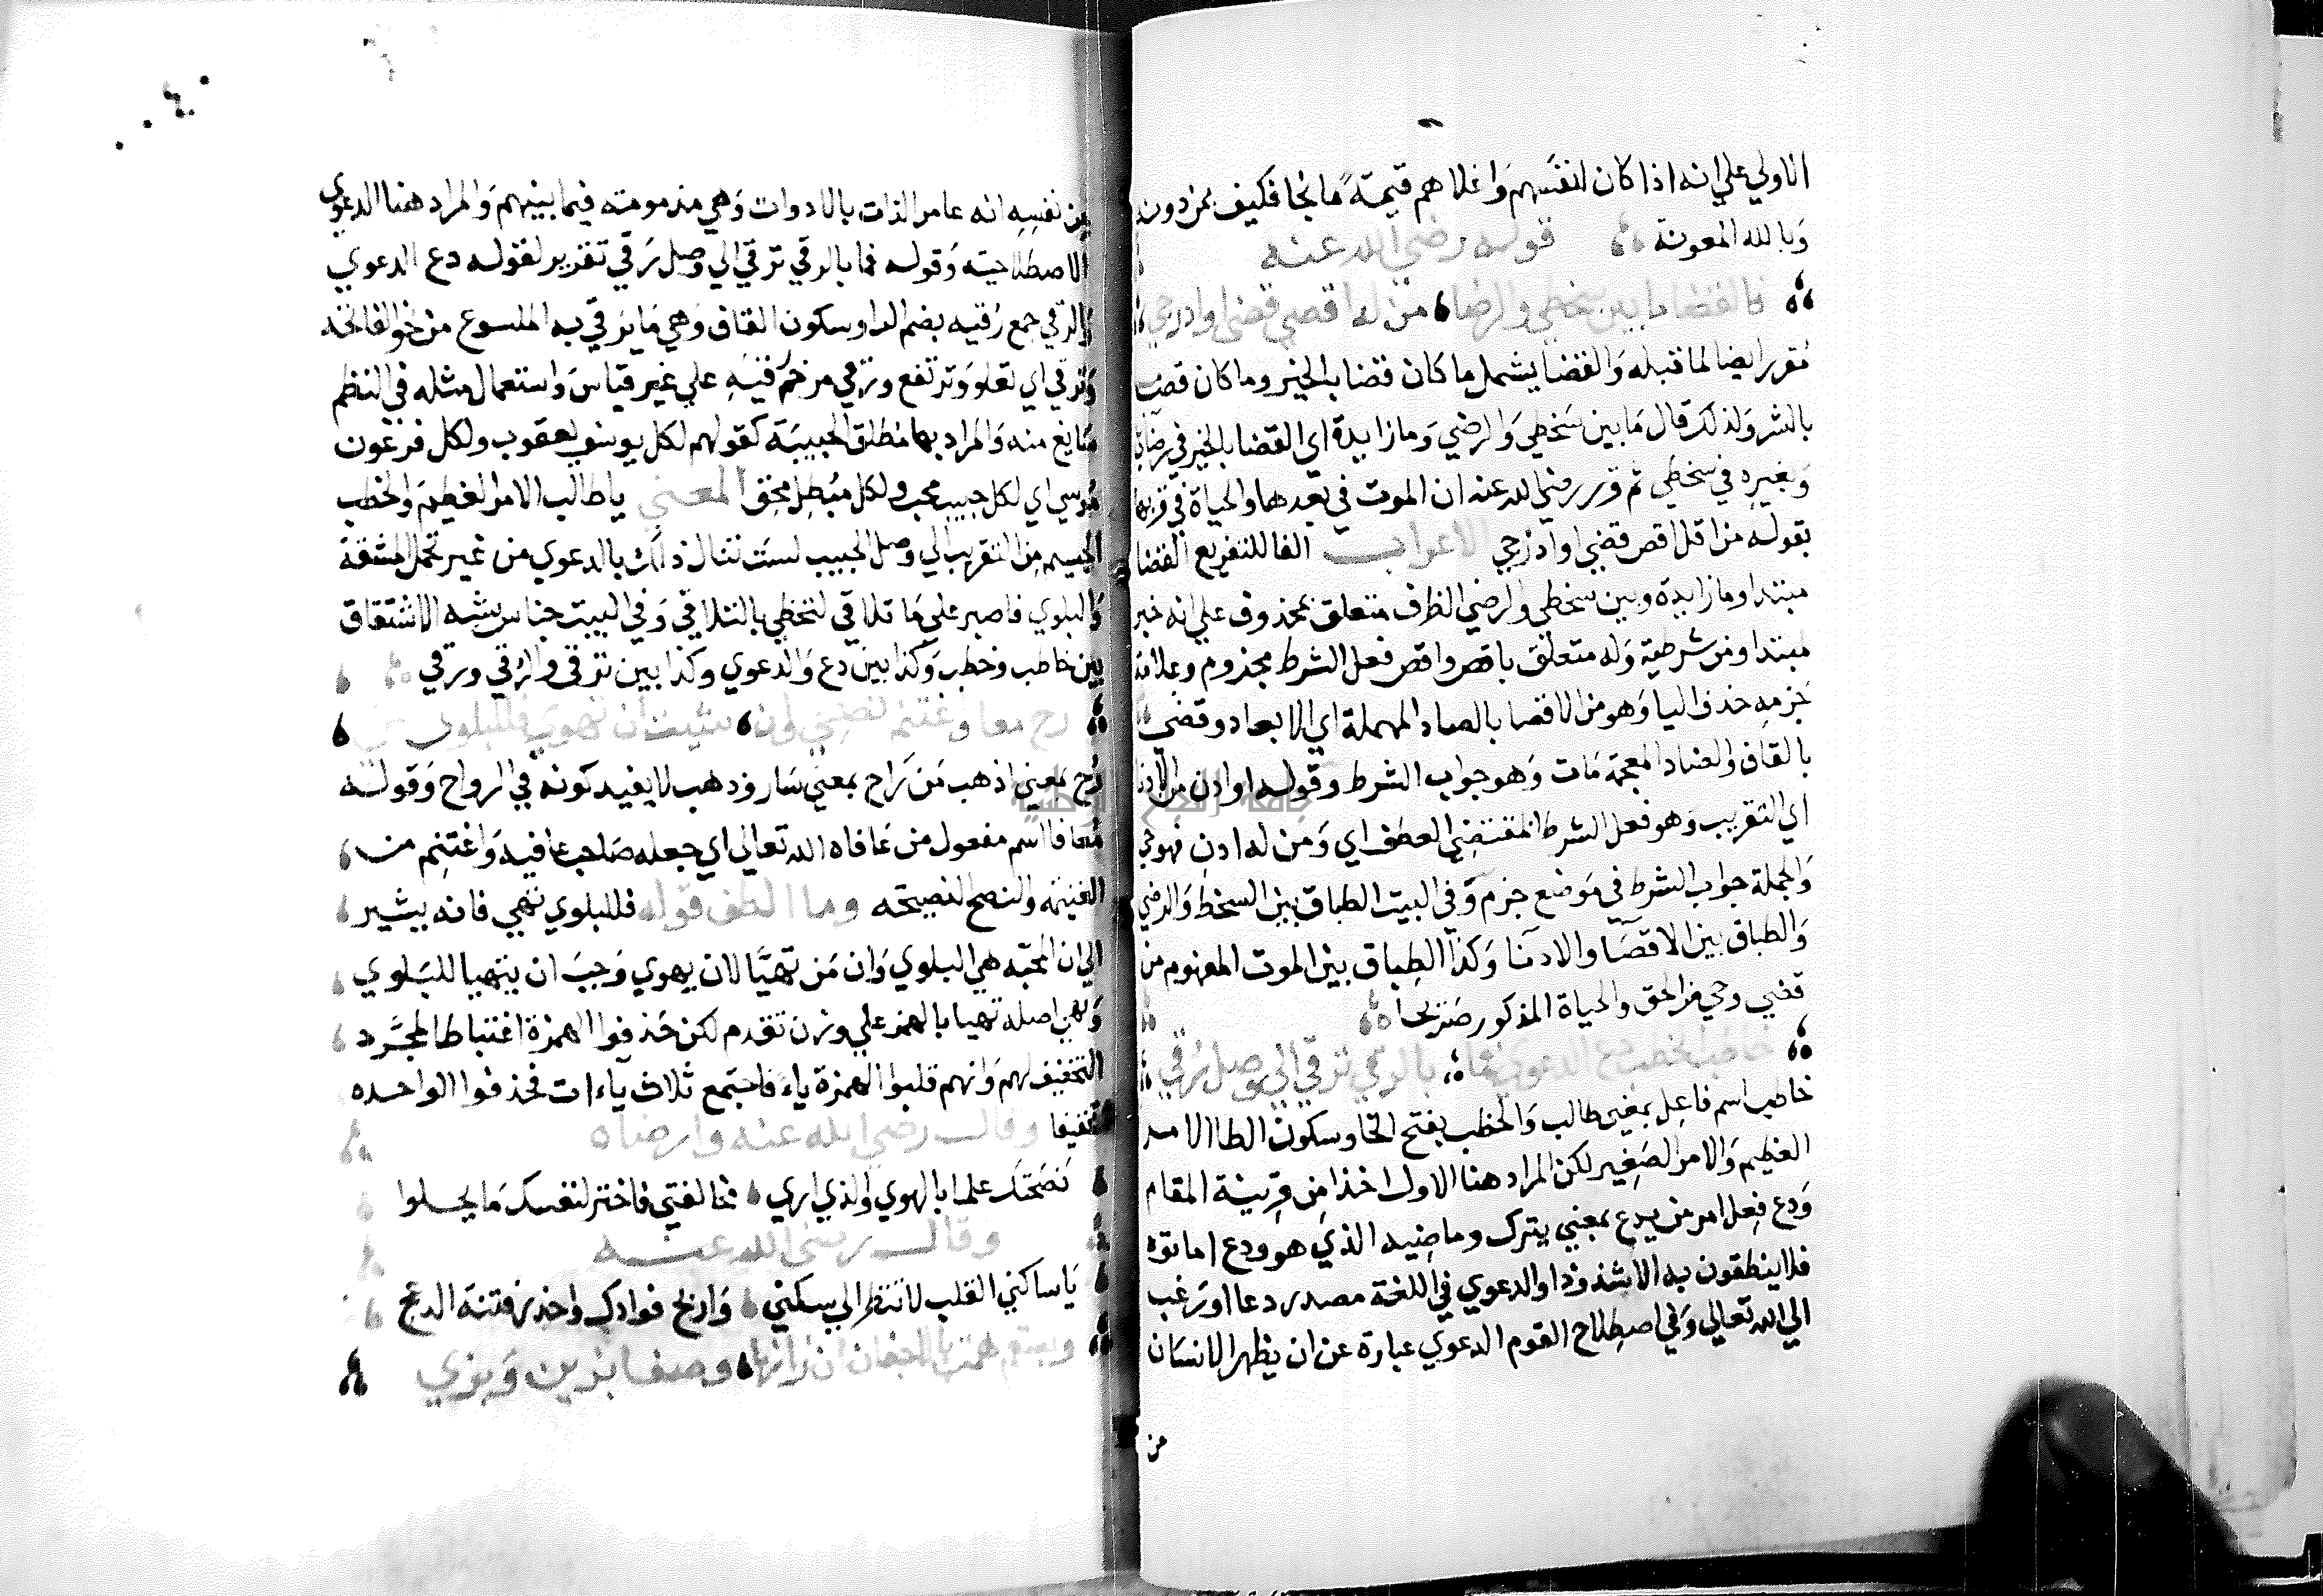 الاولي علي انه اذا كان لنفسهم واغلاهم قيمة ما نجا فكيف بمن دونه
وبالله المعونة قوله رضي الله عنه
فالقضا ما بين سخطي والرضا من له اقصي قضي او ادن حي
مقرر ايضا لما قبله والقضا يشمل ما كان قضا بالخير وما كان قضا
بالشر ولذلك قال ما بين سخطي والرضي وما زايدة اي القضا بالخير في رضاي
وبغيره في سخطي ثم قرر رضي الله عنه ان الموت في بعدها والحياة في قربها
بقوله من اقل اقص قضي او ادن حي الاعراب الفا للتفريع القضا
مبتدا وما زايدة وبين سخطي والرضي الظرف متعلق بمحذوف علي انه خبر
مبتدا ومن شرطية وله متعلق باقص واقص فعل الشرط مجذوم وعلامة
جزمه حذف اليا وهو من الاقصا بالصاد المهملة اي الابعاد وقضي
بالقاف والضاد المعجمة مات وهو جواب الشرط وقوله او ادن من الادنا
اي التقريب وهو فعل الشرط المقتضي العطف اي ومن له ادن فهو حي
والجملة جواب الشرط في موضع جزم وفي البيت الطباق بين السخط والرضي
والطباق بين الاقصا والادنا وكذا الطباق بين الموت المفهوم من
قضي وحي من الحق والحياة المذكور صريحا
خاطب الخطب دع الدعوي فما بالرقي ترقي الي وصل رقي
خاطب اسم فاعل بمعني طالب والخطب بفتح الخا وسكون الطا الامر
العظيم والامر الصغير لكن المراد هنا الاول اخذا من قرينة المقام
ودع فعل امر من يدع بمعني يترك وماضيه الذي هو ودع اماتوه
فلا ينطقون به الا شذوذا والدعوي في اللغة مصدر دعا او رغب
الي الله تعالي وفي اصطلاح القوم الدعوي عبارة عن ان يظهر الانسان
من
من نفسه انه عامر الذات بالادوات وهي مذمومته فيما بينهم والمراد هنا الدعوي
الاصطلاحيته وقوله فما بالرقي ترقي الي وصل رقي تقرير لقوله دع الدعوي
والرقي جمع رقيه بضم الرا وسكون القاف وهي ما يرقي به الملسوع من نحو الفاتحة
وترقي اي تعلو وترتفع ورقي مرخم رقيه علي غير قياس واستعمال مثله في النظم
سايغ منه والمراد بها مطلق الحبيبة كقولهم لكل يوسف يعقوب ولكل فرعون
موسي اي لكل حبيب محب ولكل مبطل محق المعني يا طالب الامر العظيم والخطب
الجسيم من التقرب الي وصل الحبيب لست تنال ذلك بالدعوي من غير تحمل المشقة
والبلوي فاصبر علي ما تلاقي لتحظي بالتلاقي وفي البيت جناس يشبه الاشتقاق
بين خاطب وخطب وكذا بين دع والدعوي وكذا بين ترقي والرقي ورقي
رح معا واغتنم نصحي وان شيت ان تهوي فللبلوي تهي
رح بمعني اذهب من راح بمعني سار وذهب لا يفيد كونه في الرواح وقوله
معافا اسم مفعول من عافاه الله تعالي اي جعله صاحب عافيه واغتنم من
الغنيمه والنصح النصيحه وما الطف قوله فللبلوي تهي فانه يشير
الي ان المحبه هي البلوي وان من تهيا لان يهوي وجب ان يتهيا للبلوي
وتهي اصله تهيا بالهمز علي وزن تقدم لكن حذفوا الهمزة اغتباطا لمجرد
التخفيف لهم وانهم قلبوا الهمزة ياء فاجتمع ثلاث ياءات فحذفوا الواحده
تخفيفا وقال رضي الله عنه وارضاه
نصحتك علما بالهوي والذي اري مخالفتي فاختر لنفسك ما يحلوا
وقال رضي الله عنه
يا ساكني القلب لا تنظر الي سكني واربح فوادك واحذر فتنة الدعج
وصفا بزين وبزي